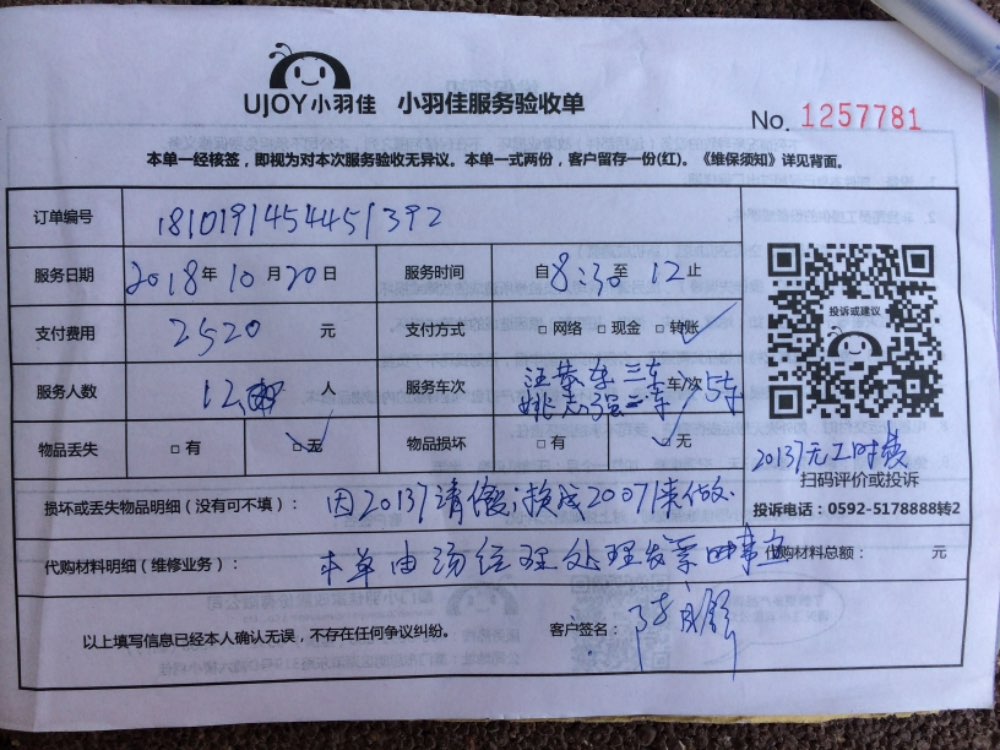 UJOY小羽佳 小羽佳服务验收单
No. 1257781
本单一经核签，即视为对本次服务验收无异议。本单一式两份，客户留存一份(红)。《维保须知》详见背面。
订单编号 1810191454451392
服务日期 2018年10月20日 服务时间 自8:30至12止
投诉或建议
支付费用 2520 元 支付方式 □网络 □现金 □转账✓
服务人数 12 人 服务车次 汪荣东三车 车/次 5车
姚志强二车
物品丢失 □有 □无✓ 物品损坏 □有 □无✓
20137无工时费
扫码评价或投诉
损坏或丢失物品明细（没有可不填）： 因20137请假；换成20071来做.
投诉电话：0592-5178888转2
代购材料明细（维修业务）： 本单由汤经理处理发票 代购材料总额： 元
以上填写信息已经本人确认无误，不存在任何争议纠纷。 客户签名：